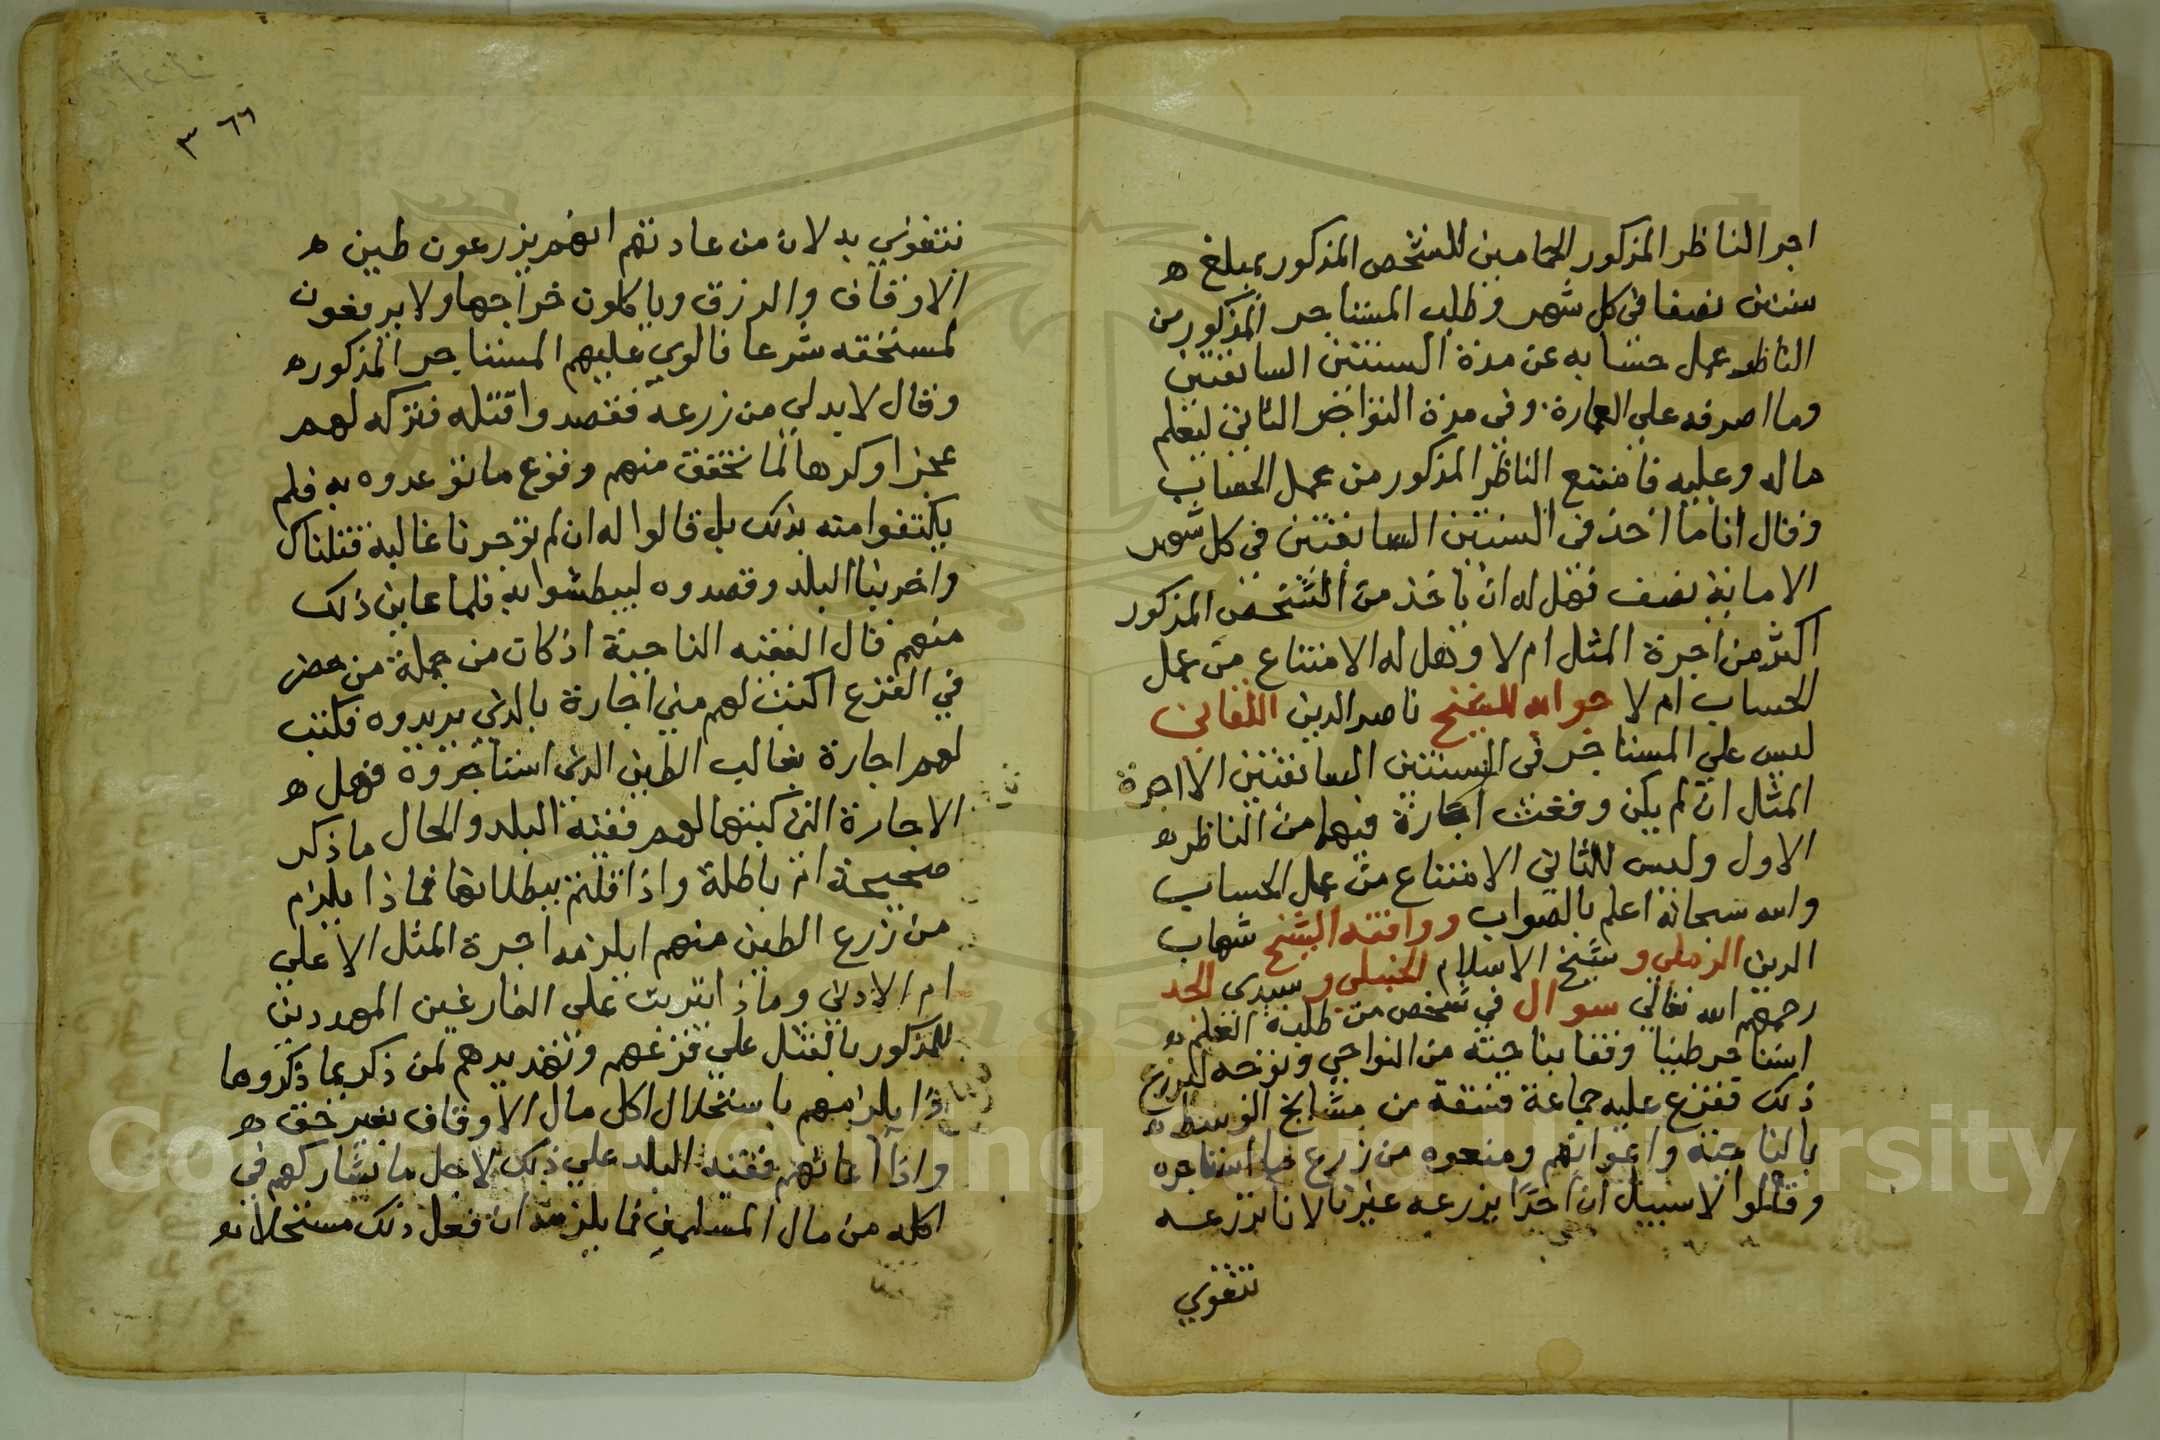 اجر الناظر المذكور الحمامين للشخص المذكور بمبلغ ه
ستين نصفا في كل شهر وطلب المستاجر المذكور من
الناظر عمل حسابه عن مدة السنتين السابقتين
وما اصرفه علي العمارة وفي مدة التواجر الثاني ليعلم
ماله وعليه فامتنع الناظر المذكور من عمل الحساب
وقال انا ما اخذ في السنتين السابقتين في كل شهر
الا مائة نصف فهل له ان ياخذ من الشخص المذكور
اكثر من اجرة المثل ام لا وهل له الامتناع من عمل
الحساب ام لا جوابه للشيخ ناصر الدين اللقاني
ليس علي المستاجر في السنتين السابقتين الا اجرة
المثل ان لم يكن وقعت اجارة فيهما من الناظر ه
الاول وليس للثاني الامتناع من عمل الحساب
والله سبحانه اعلم بالصواب ووافقه الشيخ شهاب
الدين الرملي وشيخ الاسلام الحنبلي وسيدي الجد
رحمهم الله تعالي سوال في شخص من طلبة العلم ه
استاجر طينا وقفا بناحية من النواحي وتوجه ليزرع
ذلك ففزع عليه جماعة فسقة من مشايخ
بالناحية واعوانهم ومنعوه من زرع ما استاجره
وقالوا لا سبيل ان احدا يزرعه غيرنا لاننا نزرعه
نتقوي
٣٦٦
نتقوي به لان من عادتهم انهم يزرعون طين ه
الاوقاف والرزق وياكلون خراجها ولا يدفعون
لمستحقه شرعا فالوي عليهم المستاجر المذكور ه
وقال لا بد لي من زرعه فقصدوا قتله فتركه لهم
عجزا وكرها لما تحقق منهم وقوع ما توعدوه به فلم
يكتفوا منه بذلك بل قالوا له ان لم توجرنا غالبه قتلناك
واخربنا البلد وقصدوه ليبطشوا به فلما عاين ذلك
منهم قال لفقيه الناحية اذ كان من جملة من حضر
في الفزع اكتب لهم مني اجارة بالذي يريدوه فكتب
لهم اجارة بغالب الطين الذي استاجروه فهل ه
الاجارة التي كتبها لهم فقيه البلد والحال ما ذكر
صحيحة ام باطلة واذا قلتم ببطلانها فماذا يلزم
من زرع الطين منهم ايلزمه اجرة المثل الاعلي
ام الادني وماذا يترتب علي الفازعين المهددين
للمذكور بالقتل علي فزعهم وتهديدهم لمن ذكر بما ذكروها
يلزمهم باستحلال اكل مال الاوقاف بغير حق ه
واذا اعانهم فقيه البلد علي ذلك لاجل ما يشاركهم في
اكله من مال المسلمين فما يلزمه ان فعل ذلك مستحلا له
Copyright © King Saud University
1957